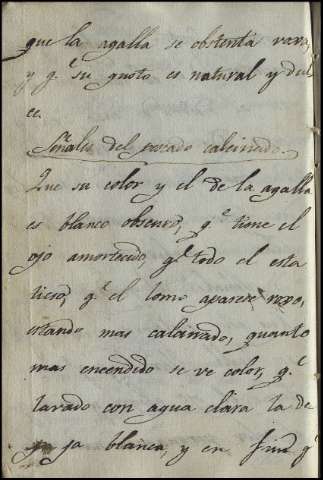 que la agalla se obstenta roxa,
y q.e su gusto es natural y dul
ce.
Señales del pescado calcinado.
Que su color y el de la agalla
es blanco obscuro, q.e tiene el
ojo amortecido, q.e todo el esta
tieso, q.e el lomo aparece roxo,
estando mas calcinado, quanto
mas encendido se ve color, q.e
lavado con agua clara la de
ja blanca, y en fin q.e